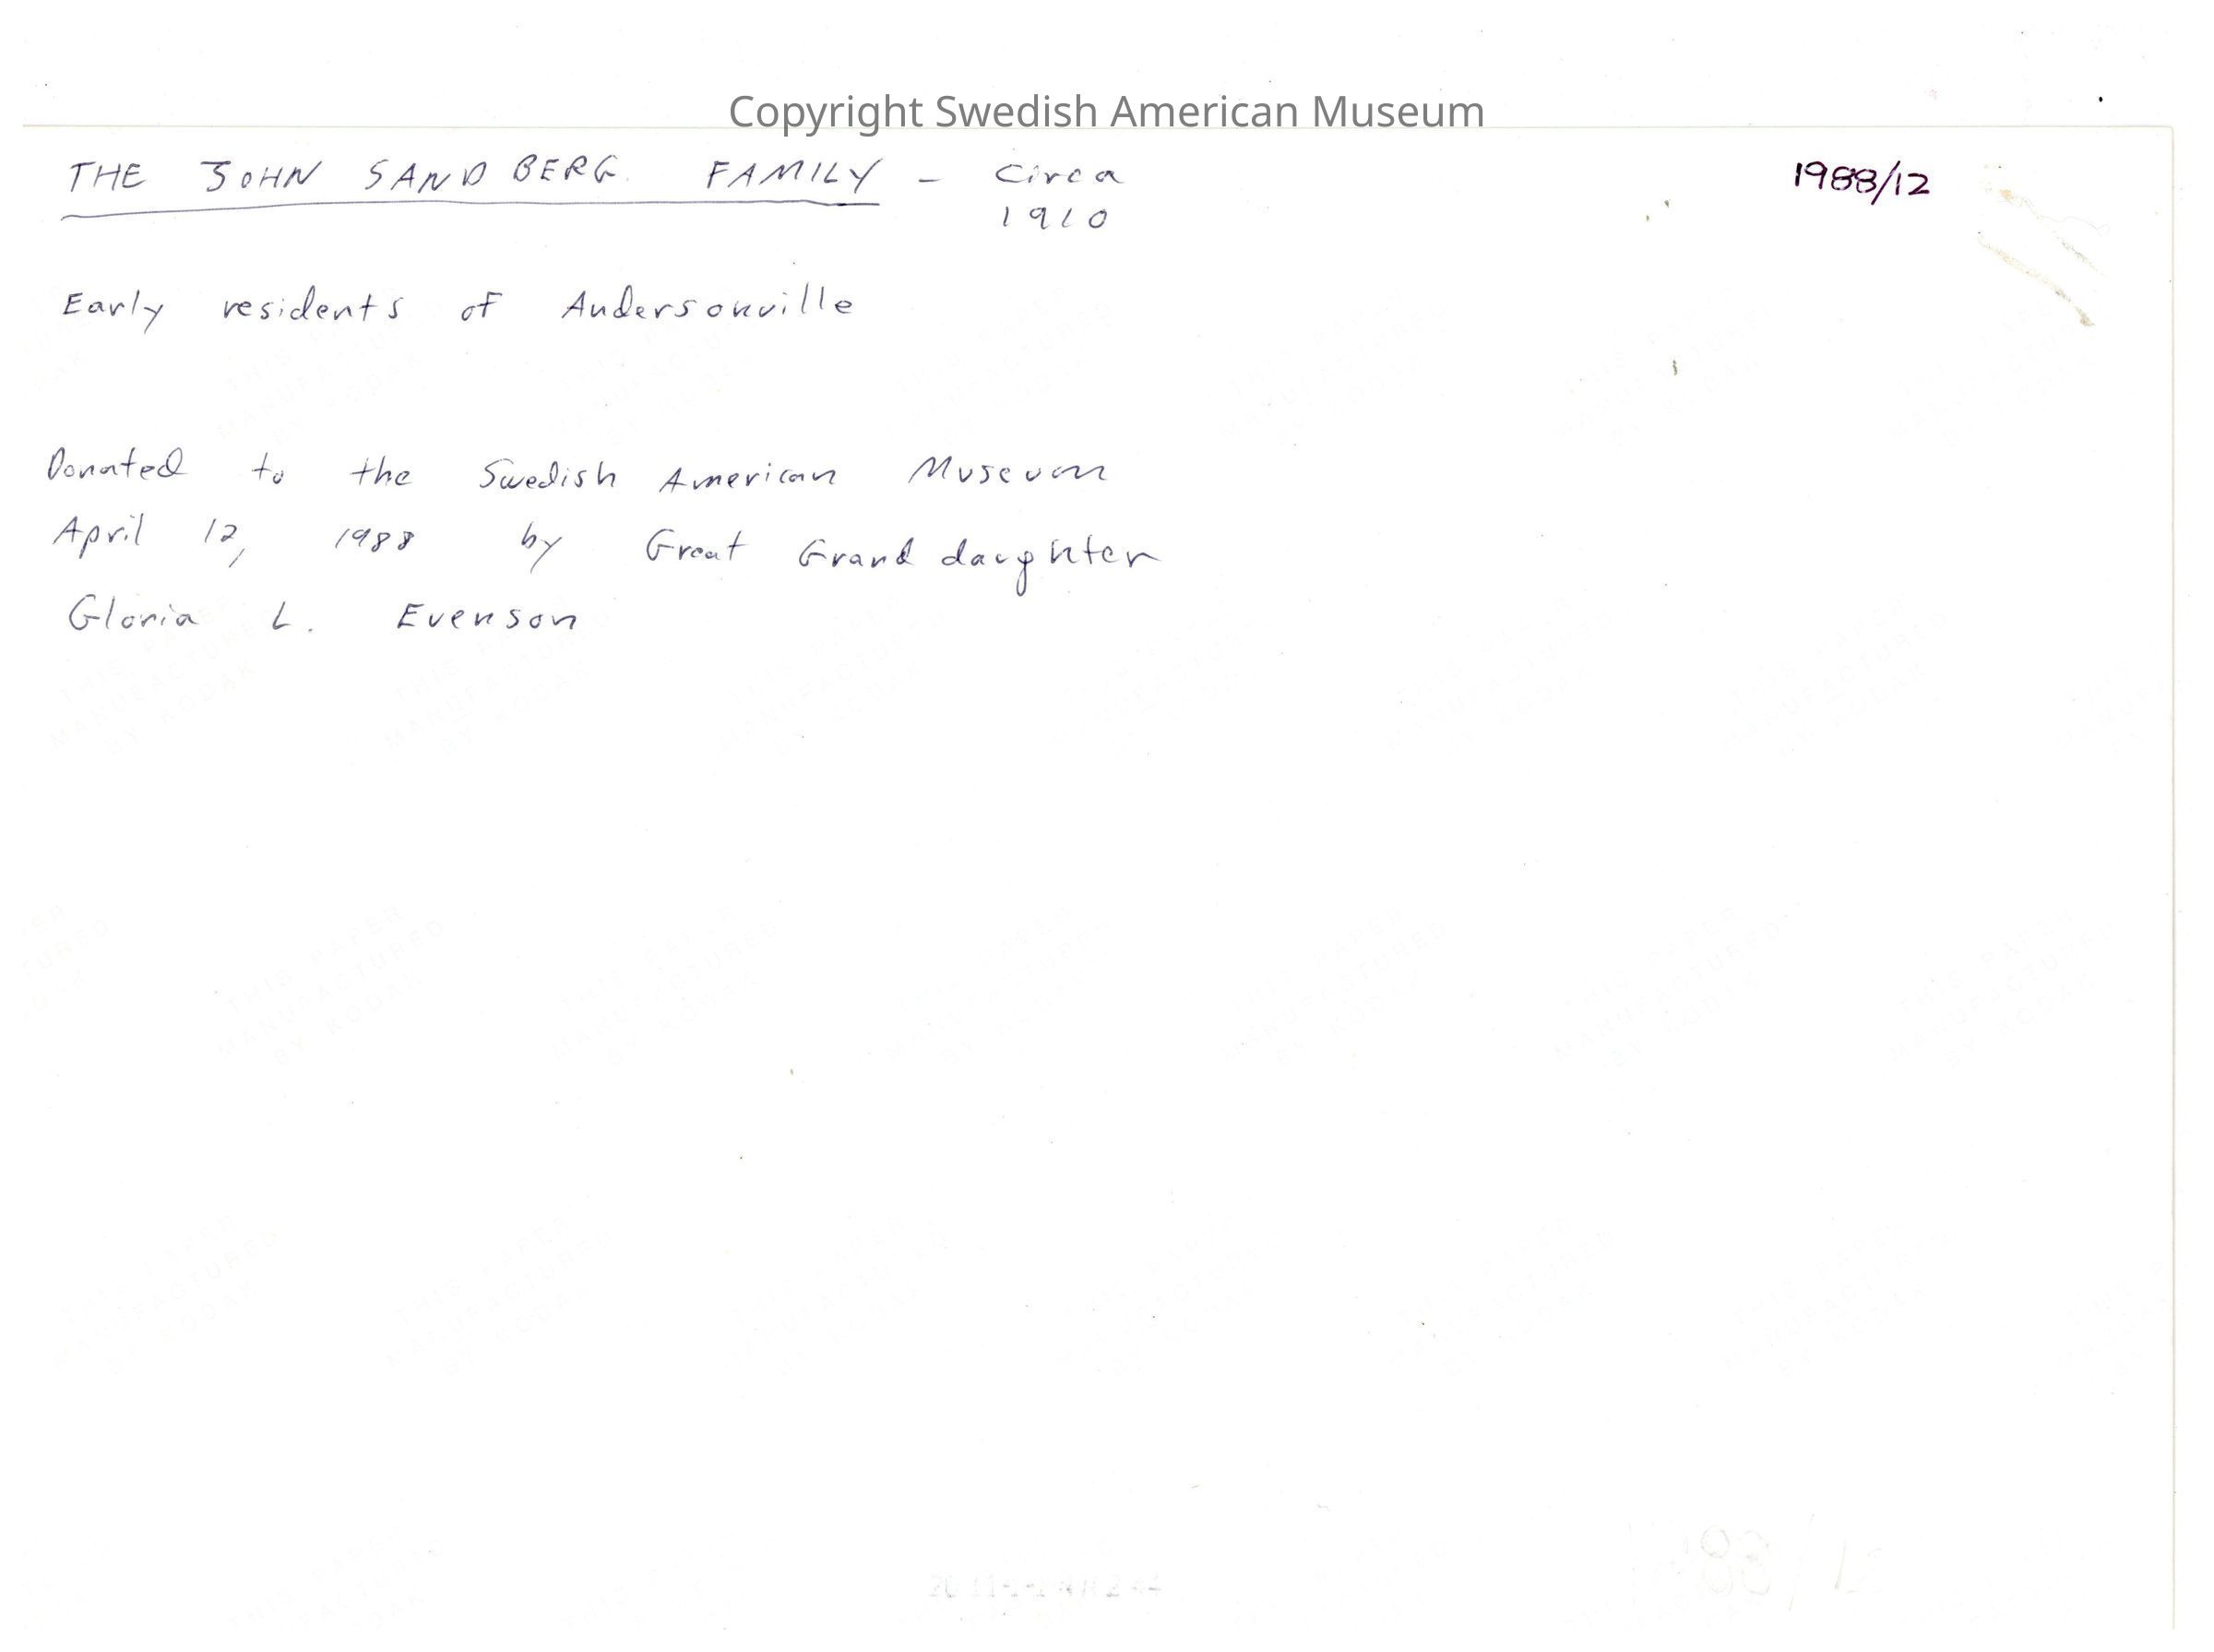 Copyright Swedish American Museum
THE JOHN SANDBERG FAMILY - Circa
1910
1988/12
Early residents of Andersonville
Donated to the Swedish American Museum
April 12, 1988 by Great Grand daughter
Gloria L. Evenson
THIS PAPER
MANUFACTURED
BY KODAK